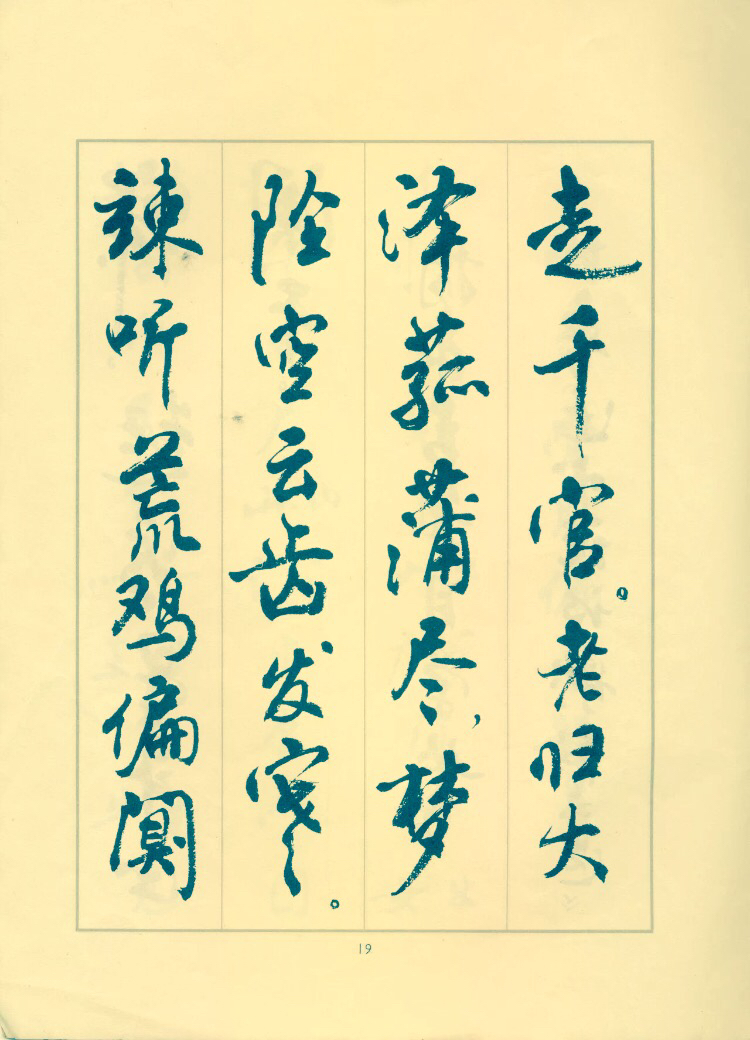 走千官。老归大
泽菰蒲尽，梦
坠空云齿发寒。
竦听荒鸡偏阒
19